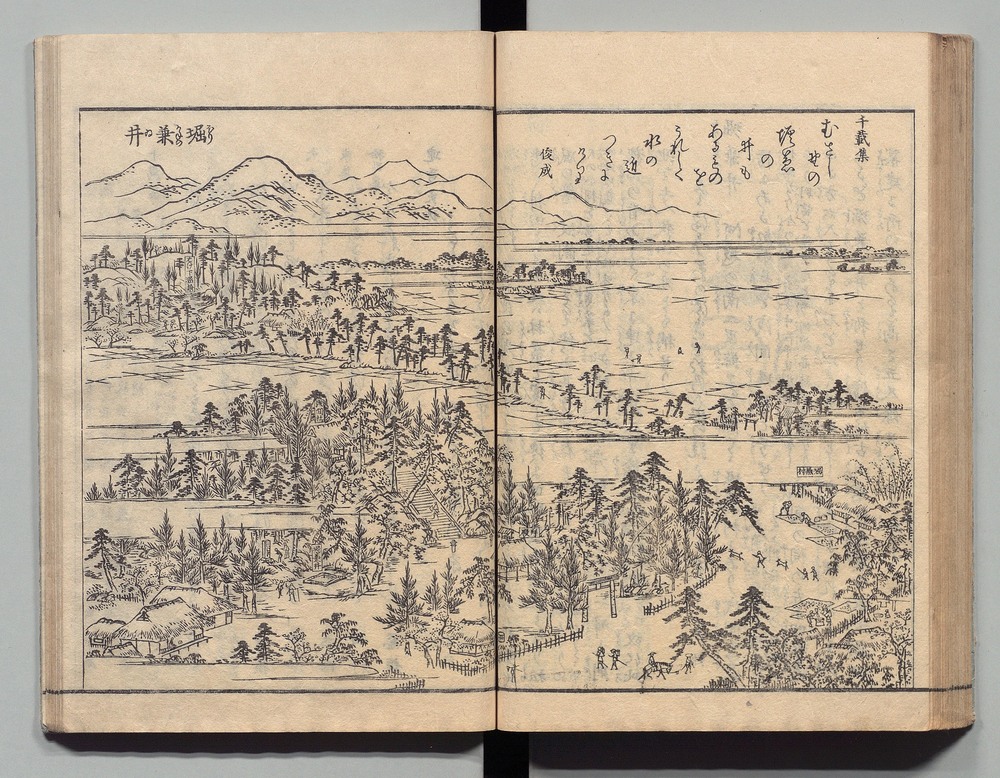 千載集
むさし
野の
堀兼
の
井も
あるものを
うれしく
水の
近
つきに
けり
俊成
堀兼井